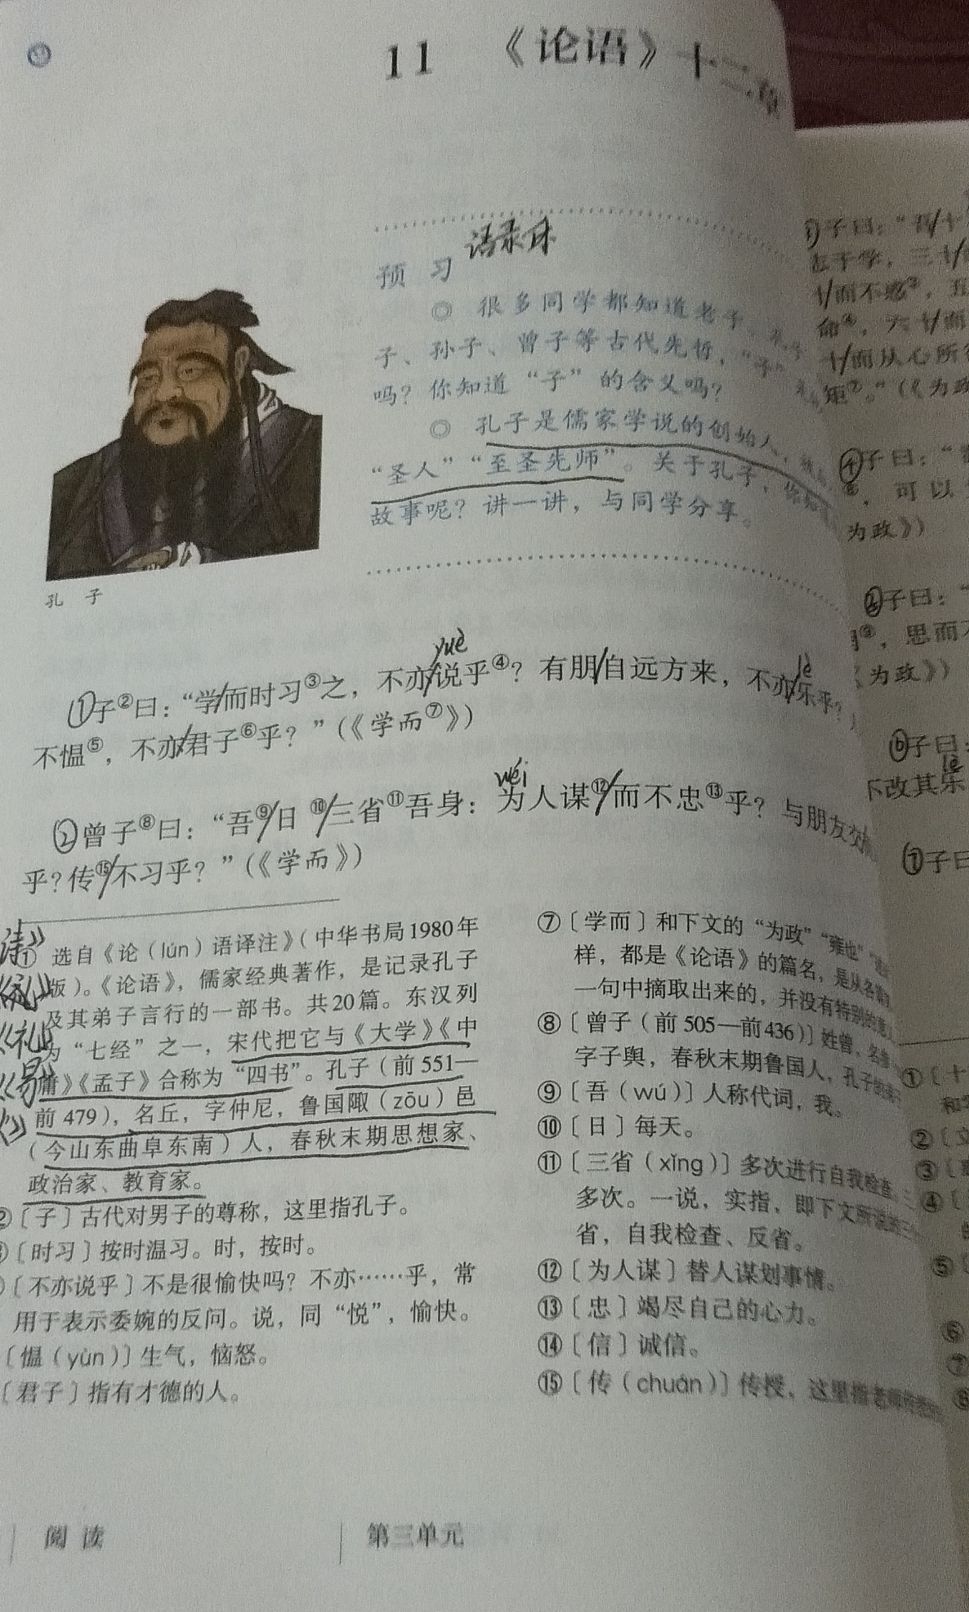 11 《论语》十二章
语录体
预 习
◎ 很多同学都知道老子
子、孙子、曾子等古代先哲，“子”
吗？你知道“子”的含义吗？
◎ 孔子是儒家学说的创始人，
“圣人”“至圣先师”。关于孔子，你知
故事呢？讲一讲，与同学分享。
孔 子
yuè
lè
①子②曰：“学/而时习③之，不亦/说乎④？有朋/自远方来，不亦/乐乎？
不愠⑤，不亦/君子⑥乎？”（《学而⑦》）
wèi
②曾子⑧曰：“吾⑨/日⑩/三省⑪吾身：为人谋⑫/而不忠⑬乎？与朋友交
乎？传⑮/不习乎？”（《学而》）
① 选自《论（lún）语译注》（中华书局1980年
版）。《论语》，儒家经典著作，是记录孔子
及其弟子言行的一部书。共20篇。东汉列
为“七经”之一，宋代把它与《大学》《中
庸》《孟子》合称为“四书”。孔子（前551—
前479），名丘，字仲尼，鲁国陬（zōu）邑
（今山东曲阜东南）人，春秋末期思想家、
政治家、教育家。
②〔子〕古代对男子的尊称，这里指孔子。
〔时习〕按时温习。时，按时。
〔不亦说乎〕不是很愉快吗？不亦……乎，常
用于表示委婉的反问。说，同“悦”，愉快。
〔愠（yùn）〕生气，恼怒。
〔君子〕指有才德的人。
《诗》
《礼》
《易》
⑦〔学而〕和下文的“为政”“雍也”
样，都是《论语》的篇名，是从各篇
一句中摘取出来的，并没有特别的意
⑧〔曾子（前505—前436）〕姓曾，名参
字子舆，春秋末期鲁国人，孔子的弟子
⑨〔吾（wú）〕人称代词，我。
⑩〔日〕每天。
⑪〔三省（xǐng）〕多次进行自我检查
多次。一说，实指，即下文所说的三
省，自我检查、反省。
⑫〔为人谋〕替人谋划事情。
⑬〔忠〕竭尽自己的心力。
⑭〔信〕诚信。
⑮〔传（chuán）〕传授，这里指老师传授
阅 读
第三单元
子曰：“
于学，三十
/而不惑③，五
命④，六十/而
十/而从心所
矩⑦。”（《为政
④子曰：“
，可以
为政》）
子曰：“
，思而
《为政》）
⑥子曰：
lè
改其乐
⑦子曰
①〔十
②〔
③〔
④〔
⑤〔
⑥
⑦
⑧